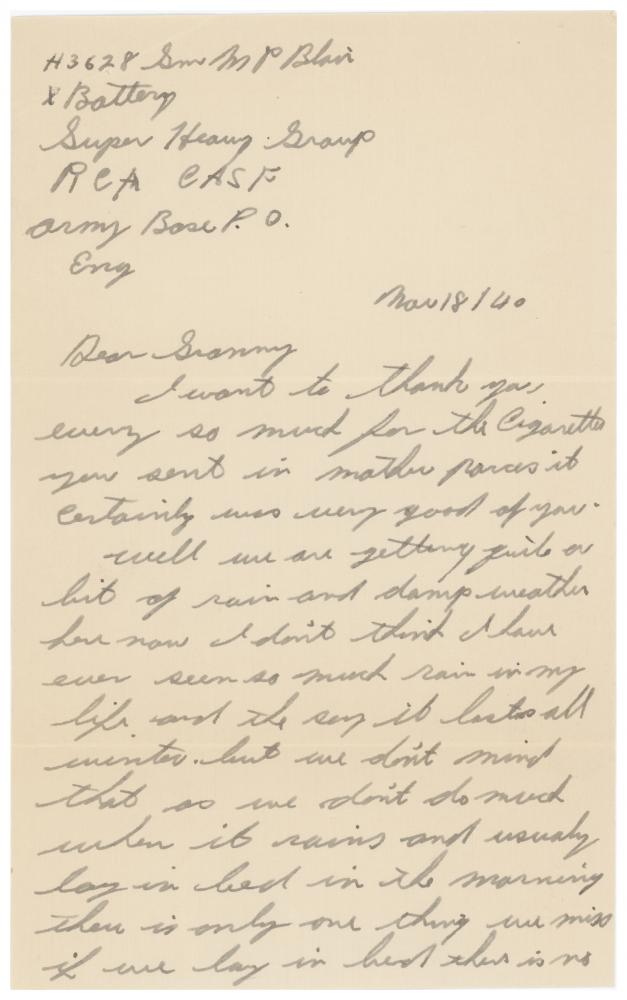 H3628 Gnr M P Blair
X Battery
Super Heavy Group
RCA CASF
Army Base P. O.
Eng
Nov 18/40
Dear Granny
I want to thank you
every so much for the Cigarettes
you sent in mother parces it
Certainly was very good of you.
well we are getting quite a
bit of rain and damp weather
here now I don't think I have
ever seen so much rain in my
life and the say it lasts all
winter. but we don't mind
that as we don't do much
when it rains and usualy
lay in bed in the morning
there is only one thing we miss
if we lay in bed there is no